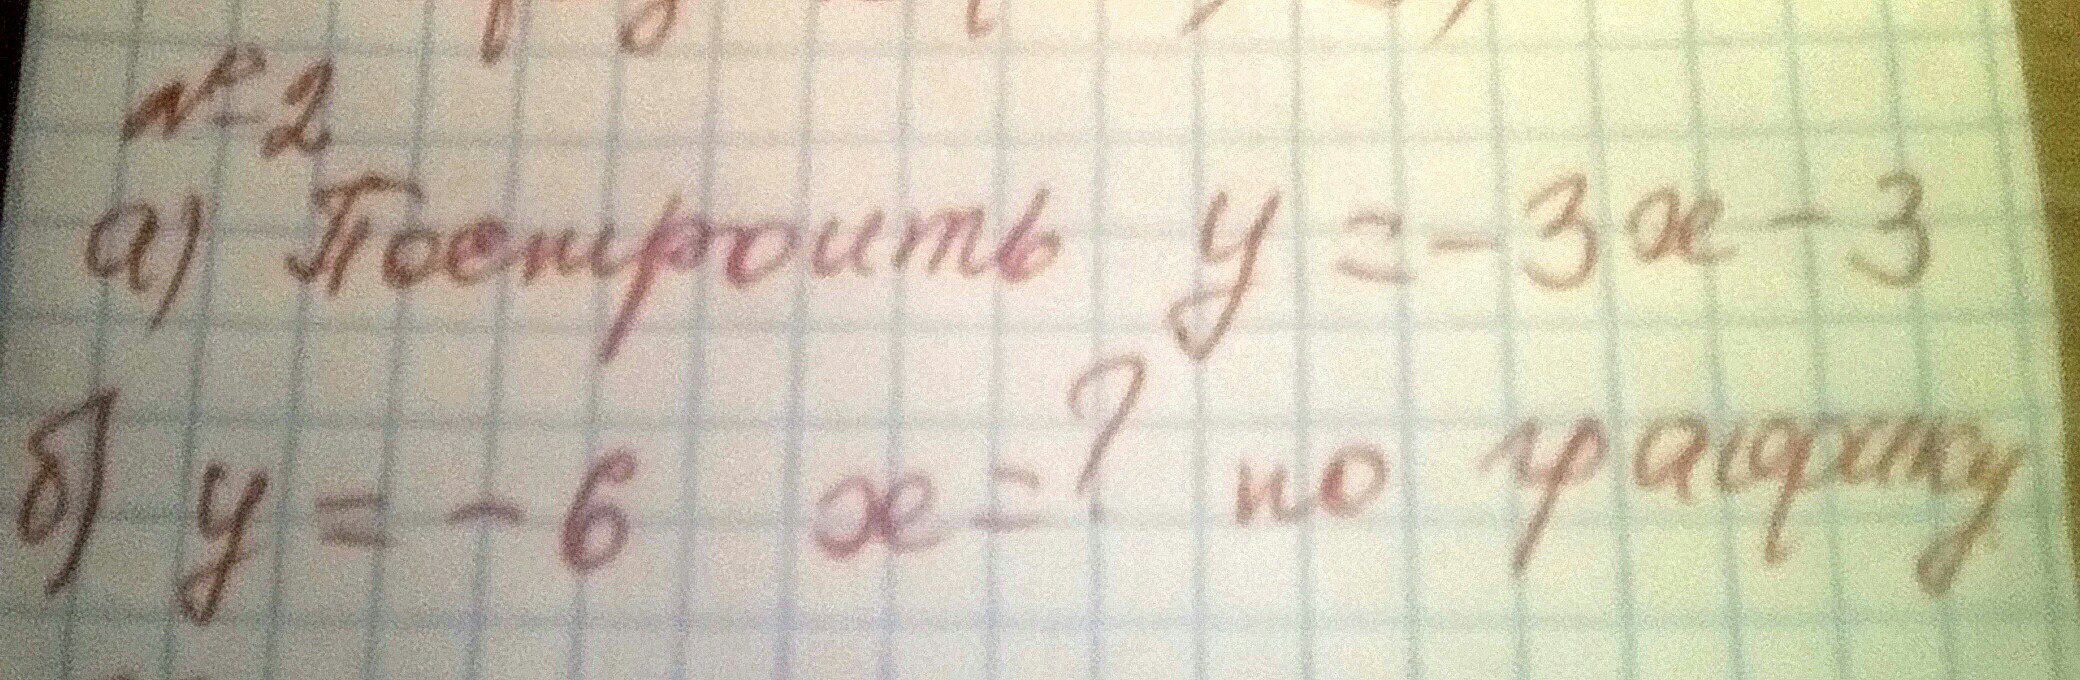 №2
а) Построить y = -3x - 3
б) y = -6 x = ? по графику